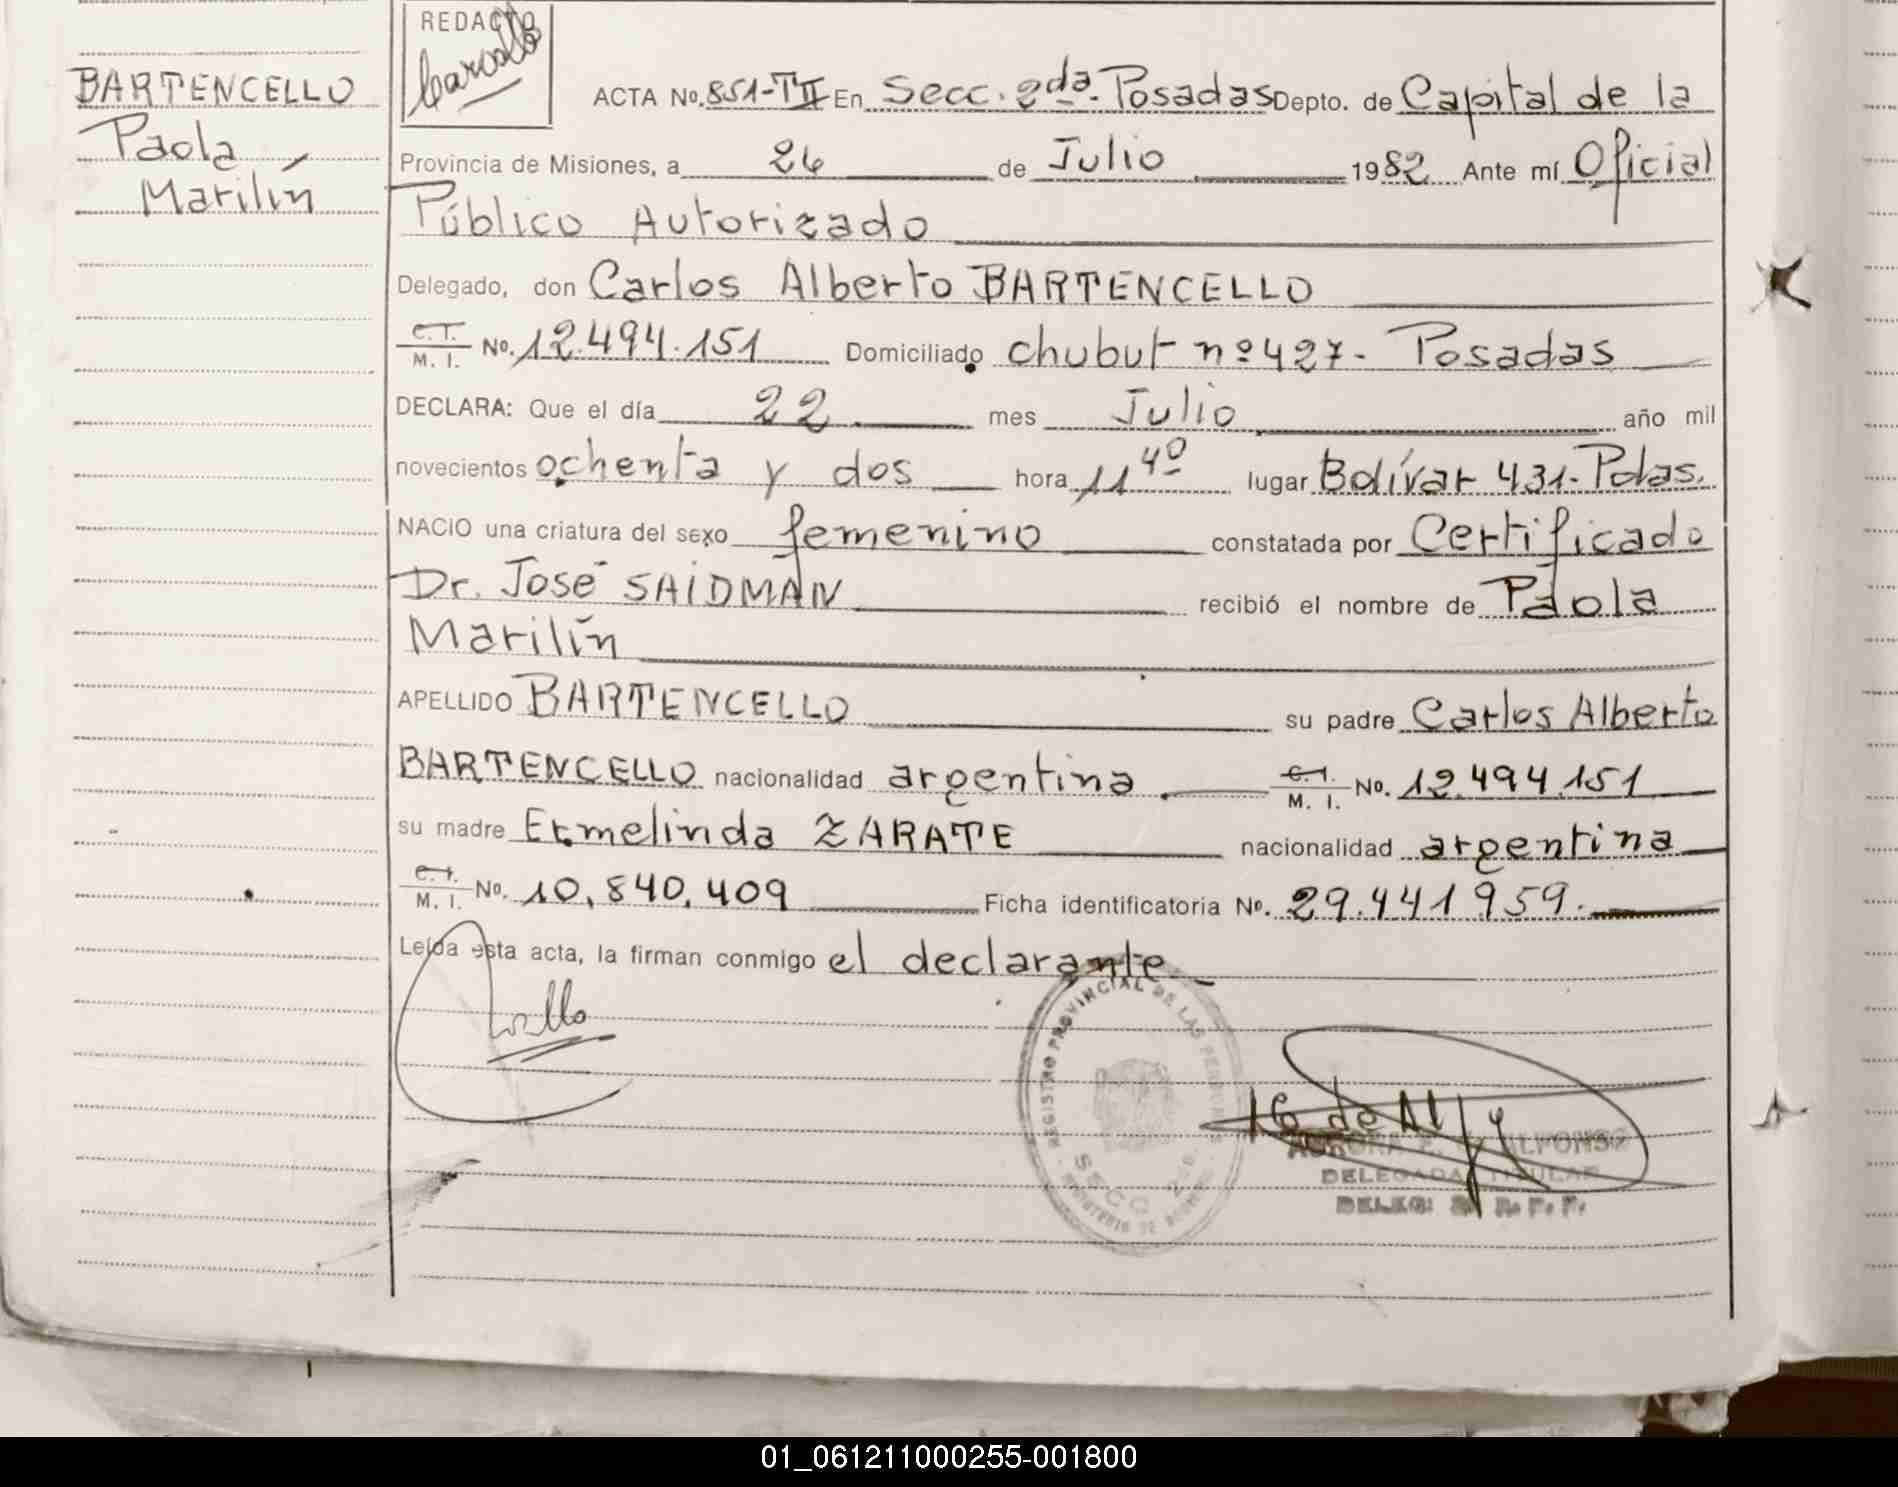 BARTENCELLO
Paola
Marilín
REDACTO
ACTA No. 851-TII En Secc. 2da. Posadas Depto. de Capital de la
Provincia de Misiones, a 26 de Julio 1982 Ante mí Oficial
Público Autorizado
Delegado, don Carlos Alberto BARTENCELLO
C.I. M. I. No. 12.494.151 Domiciliado chubut nº 427- Posadas
DECLARA: Que el día 22 mes Julio año mil
novecientos ochenta y dos hora 11 40 lugar Bolívar 431- Pdas.
NACIO una criatura del sexo femenino constatada por Certificado
Dr. José SAIDMAN recibió el nombre de Paola
Marilín
APELLIDO BARTENCELLO su padre Carlos Alberto
BARTENCELLO nacionalidad argentina C.I. M. I. No. 12.494.151
su madre Ermelinda ZARATE nacionalidad argentina
C.I. M. I. No. 10.840.409 Ficha identificatoria No. 29.441.959.
Leída esta acta, la firman conmigo el declarante
REGISTRO PROVINCIAL DE LAS PERSONAS
SECC 2da.
ALFONSO
DELEGADA TITULAR
01_061211000255-001800